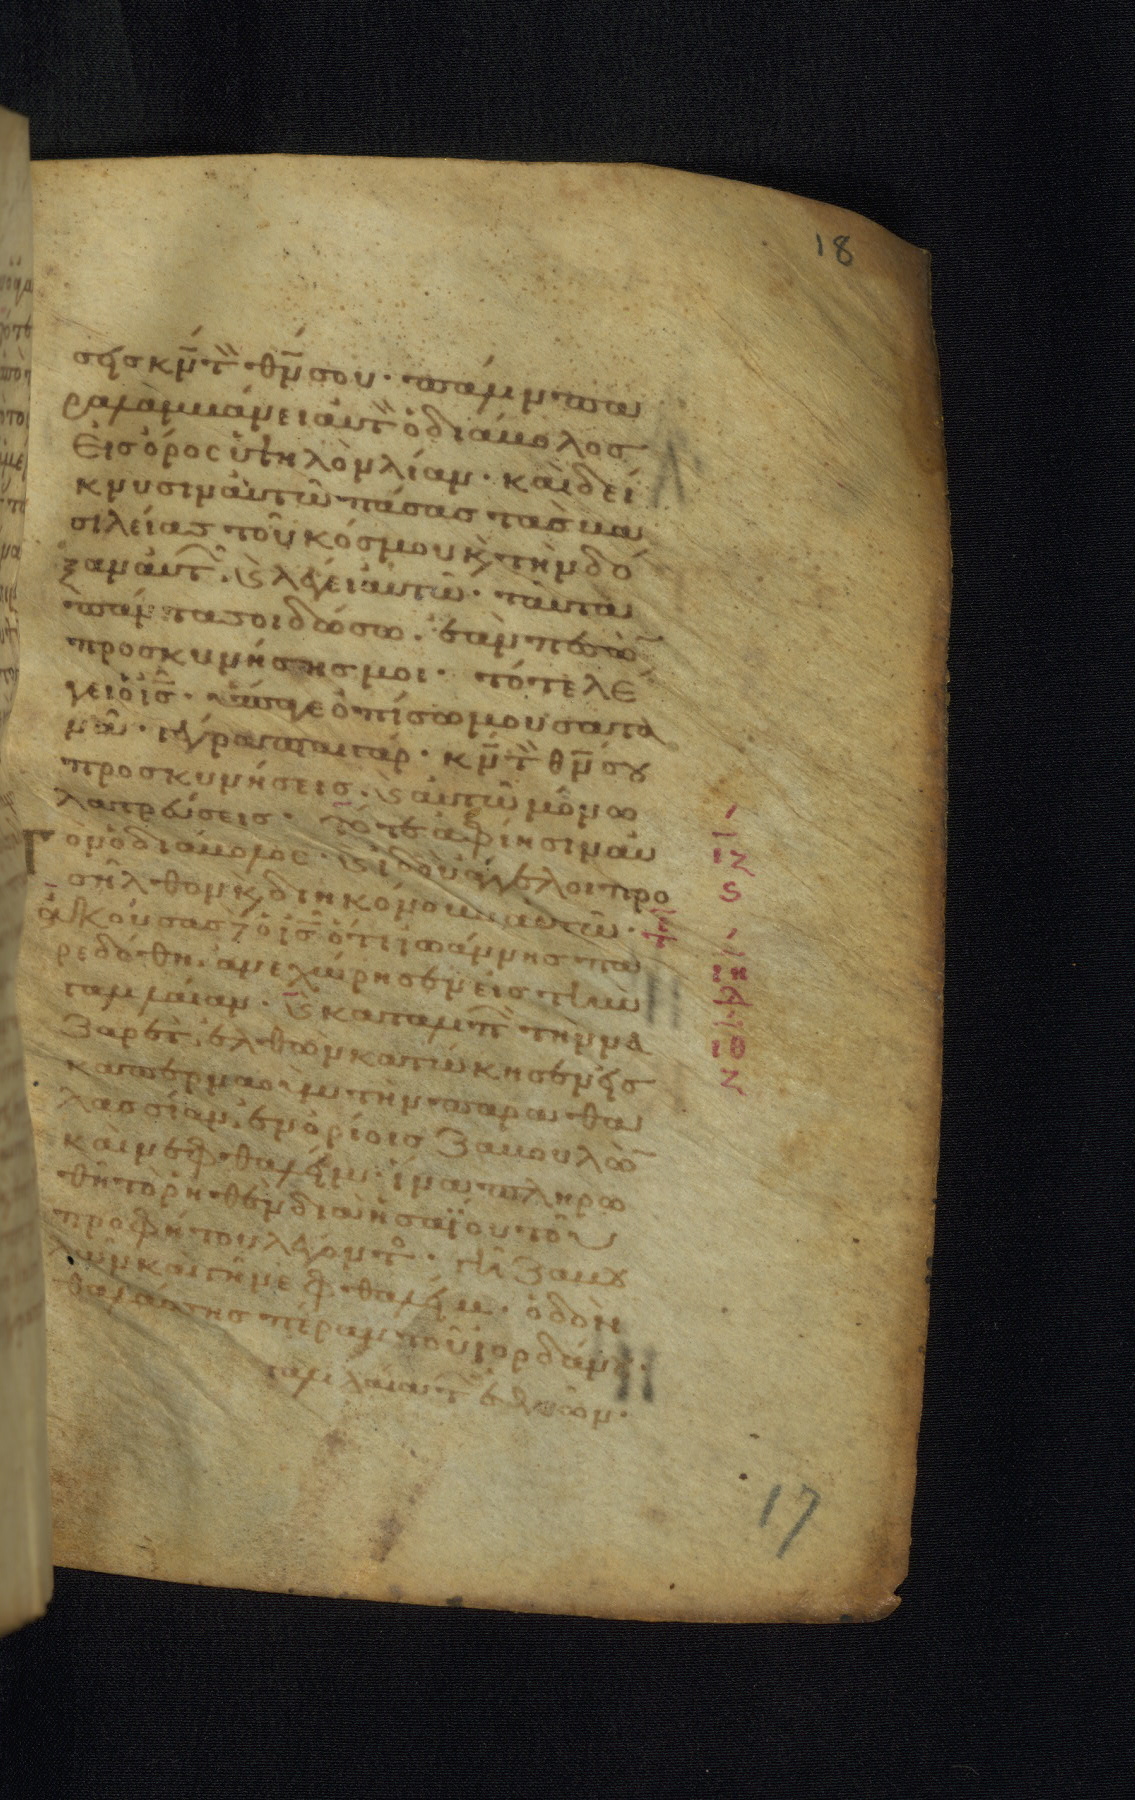 18
σεις κ̅ν̅ τὸν θ̅ν̅ σου · πάλιν πα
ραλαμβάνει αὐτὸν ὁ διάβολος
εἰς ὄρος ὑψηλὸν λίαν · καὶ δεί
κνυσιν αὐτῶ πάσας τὰς βα
σιλείας τοῦ κόσμου κ̀ τὴν δό
ξαν αὐτῶν · κ̀ λέγει αὐτῶ · ταῦτα
πάντα σοι δώσω · ἐὰν πεσὼ
προσκυνήσης μοι · τότε λέ
γει ὁ ι̅ς̅ · ὕπαγε ὀπίσω μου σατα
νᾶ · γέγραπται γάρ · κ̅ν̅ τὸν θ̅ν̅ σου
προσκυνήσεις · κ̀ αὐτῶ μόνω
λατρεύσεις · τότε ἀφίησιν αὐ
τὸν ὁ διάβολος · κ̀ ἰδοὺ ἄγγελοι προ
σῆλθον κ̀ διηκόνουν αὐτῶ ·
ἀκούσας δὲ ὁ ι̅ς̅ ὅτι ἰωάννης πα
ρεδόθη · ἀνεχώρησεν εἰς τὴν γα
λιλαίαν · κ̀ καταλιπὼν τὴν να
ζαρὲτ · ἐλθὼν κατώκησεν εἰς
καπερναοὺμ τὴν παραθα
λασσίαν · ἐν ὁρίοις ζαβουλὼ
καὶ νεφθαλείμ · ἵνα πληρω
θῆ τὸ ῥηθὲν διὰ ἠσαΐου τοῦ
προφήτου λέγοντος · γῆ ζαβου
λὼν καὶ γῆ νεφθαλείμ · ὁδὸν
θαλάσσης πέραν τοῦ ἰορδάν
17